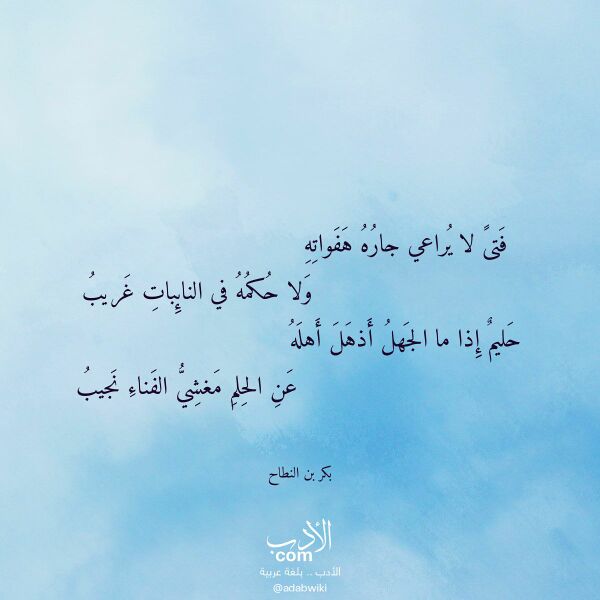 فَتىً لا يُراعي جارُهُ هَفَواتِهِ
وَلا حُكمُهُ في النايِباتِ غَريبُ
حَليمٌ إِذا ما الجَهلُ أَذهَلَ أَهلَهُ
عَنِ الحِلمِ مَغشِيُّ الفَناءِ نَجيبُ
بكر بن النطاح
الأدب
com
الأدب .. بلغة عربية
@adabwiki